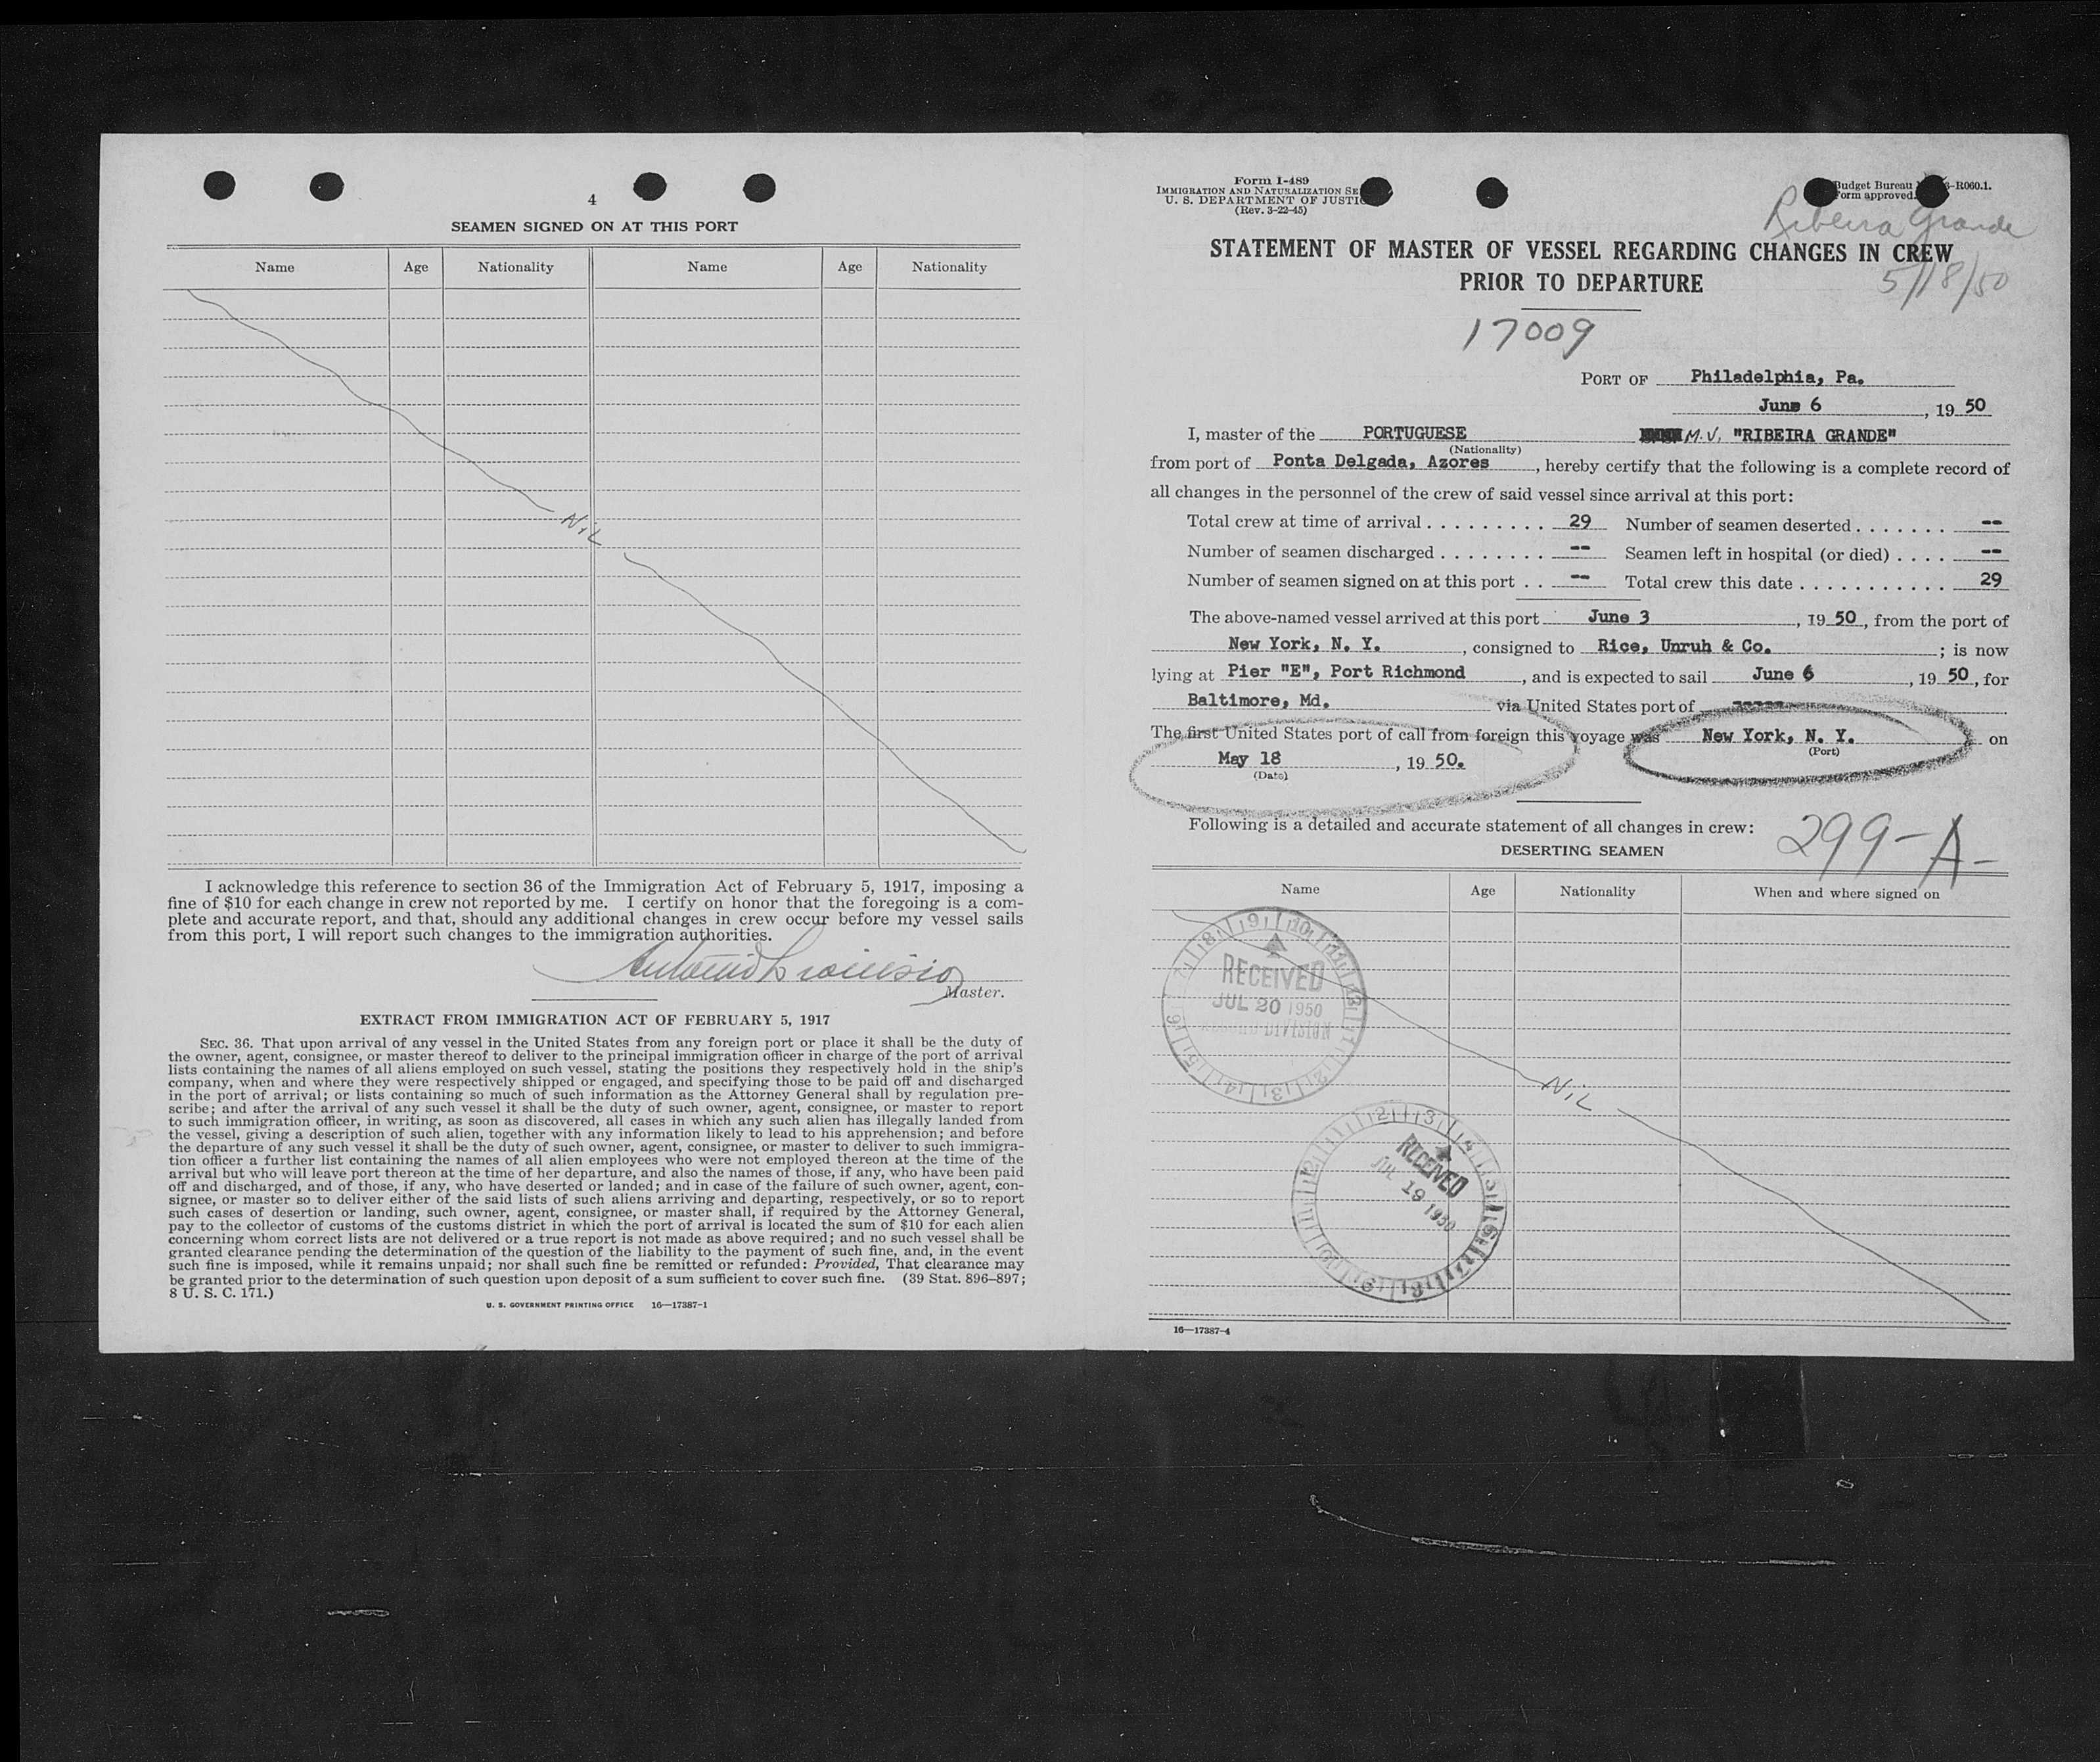 4
SEAMEN SIGNED ON AT THIS PORT
Name Age Nationality Name Age Nationality
Nil
I acknowledge this reference to section 36 of the Immigration Act of February 5, 1917, imposing a
fine of $10 for each change in crew not reported by me. I certify on honor that the foregoing is a com-
plete and accurate report, and that, should any additional changes in crew occur before my vessel sails
from this port, I will report such changes to the immigration authorities.
Master.
EXTRACT FROM IMMIGRATION ACT OF FEBRUARY 5, 1917
SEC. 36. That upon arrival of any vessel in the United States from any foreign port or place it shall be the duty of
the owner, agent, consignee, or master thereof to deliver to the principal immigration officer in charge of the port of arrival
lists containing the names of all aliens employed on such vessel, stating the positions they respectively hold in the ship's
company, when and where they were respectively shipped or engaged, and specifying those to be paid off and discharged
in the port of arrival; or lists containing so much of such information as the Attorney General shall by regulation pre-
scribe; and after the arrival of any such vessel it shall be the duty of such owner, agent, consignee, or master to report
to such immigration officer, in writing, as soon as discovered, all cases in which any such alien has illegally landed from
the vessel, giving a description of such alien, together with any information likely to lead to his apprehension; and before
the departure of any such vessel it shall be the duty of such owner, agent, consignee, or master to deliver to such immigra-
tion officer a further list containing the names of all alien employees who were not employed thereon at the time of the
arrival but who will leave port thereon at the time of her departure, and also the names of those, if any, who have been paid
off and discharged, and of those, if any, who have deserted or landed; and in case of the failure of such owner, agent, con-
signee, or master so to deliver either of the said lists of such aliens arriving and departing, respectively, or so to report
such cases of desertion or landing, such owner, agent, consignee, or master shall, if required by the Attorney General,
pay to the collector of customs of the customs district in which the port of arrival is located the sum of $10 for each alien
concerning whom correct lists are not delivered or a true report is not made as above required; and no such vessel shall be
granted clearance pending the determination of the question of the liability to the payment of such fine, and, in the event
such fine is imposed, while it remains unpaid; nor shall such fine be remitted or refunded: Provided, That clearance may
be granted prior to the determination of such question upon deposit of a sum sufficient to cover such fine. (39 Stat. 896–897;
8 U. S. C. 171.)
U. S. GOVERNMENT PRINTING OFFICE 16—17387-1
Form I-489
IMMIGRATION AND NATURALIZATION SE
U. S. DEPARTMENT OF JUSTIC
(Rev. 3-22-45)
Budget Bureau -R060.1.
Form approved.
Ribeira Grande
STATEMENT OF MASTER OF VESSEL REGARDING CHANGES IN CREW
PRIOR TO DEPARTURE
5/18/50
17009
PORT OF Philadelphia, Pa.
June 6, 19 50
I, master of the PORTUGUESE M.V. "RIBEIRA GRANDE"
(Nationality)
from port of Ponta Delgada, Azores, hereby certify that the following is a complete record of
all changes in the personnel of the crew of said vessel since arrival at this port:
Total crew at time of arrival . . . . . . . . . 29 Number of seamen deserted . . . . . . . --
Number of seamen discharged . . . . . . . . -- Seamen left in hospital (or died) . . . . --
Number of seamen signed on at this port . . -- Total crew this date . . . . . . . . . . . 29
The above-named vessel arrived at this port June 3, 19 50, from the port of
New York, N. Y., consigned to Rice, Unruh & Co.; is now
lying at Pier "E", Port Richmond, and is expected to sail June 6, 19 50, for
Baltimore, Md. via United States port of -----
The first United States port of call from foreign this voyage was New York, N. Y. on
(Port)
May 18, 19 50.
(Date)
Following is a detailed and accurate statement of all changes in crew:
299-A-
DESERTING SEAMEN
Name Age Nationality When and where signed on
RECEIVED
JUL 20 1950
RECORD DIVISION
Nil
RECEIVED
JUL 19 1950
16—17387-4